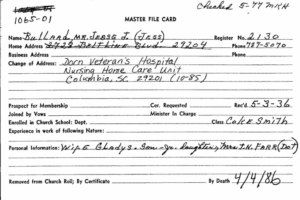 Checked 5-77 MKH
1065-01
MASTER FILE CARD
Name Bullard, MR. JESSE J. (JESS) Register No. 2130
Home Address 2728 Blvd. 29204 Phone 787-5070
Business Address Phone
Change of Address: Dorn Veteran's Hospital
Nursing Home Care Unit
Columbia, SC 29201 (10-85)
Prospect for Membership Cor. Requested Rec'd 5-3-36
Joined by Vows Minister In Charge
Enrolled in Church School: Dept. Class Coke Smith
Experience in work of following Nature:
Personal Information: Wife Gladys. Son-Jr. daughter, Mrs. T.N. FARR (DOT)
Removed from Church Roll: By Certificate By Death 4/4/86